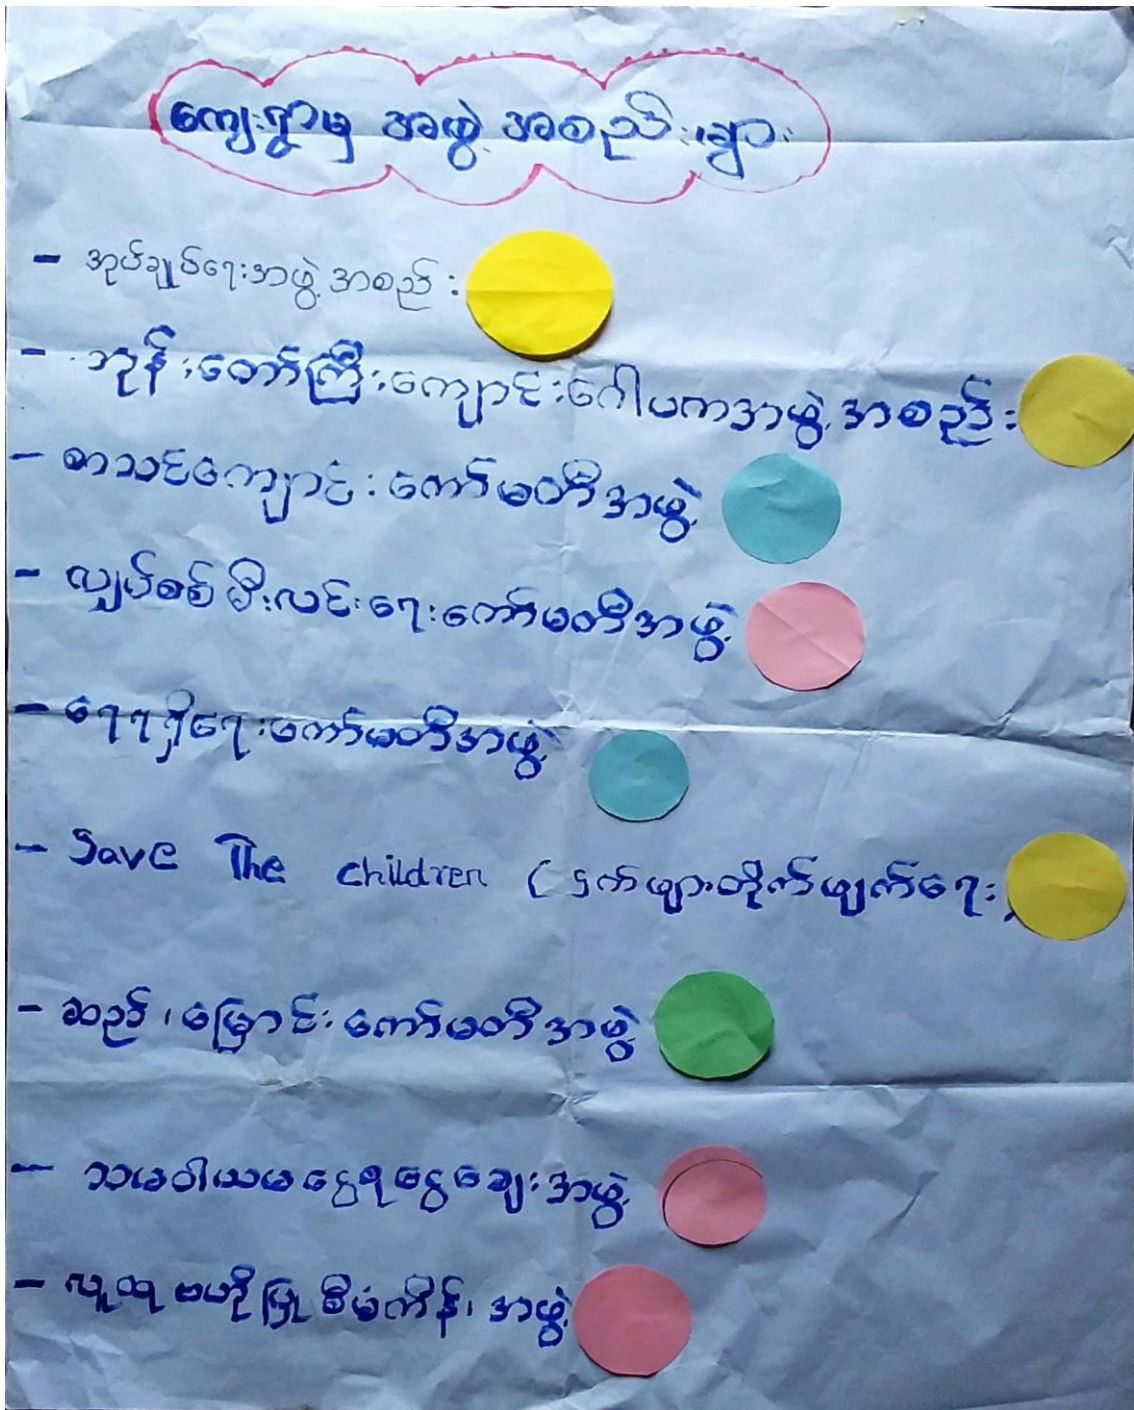 ကျေးရွာမှ အဖွဲ့အစည်းများ
- အုပ်ချုပ်ရေးအဖွဲ့အစည်း
- ဘုန်းတော်ကြီးကျောင်းဂေါပကအဖွဲ့အစည်း
- စာသင်ကျောင်းကော်မတီအဖွဲ့
- လျှပ်စစ်မီးလင်းရေးကော်မတီအဖွဲ့
- ရေရရှိရေးကော်မတီအဖွဲ့
- Save The children (ငှက်ဖျားတိုက်ဖျက်ရေး)
- ဆည်၊မြောင်းကော်မတီအဖွဲ့
- သမဝါယမငွေစုငွေချေးအဖွဲ့
- လူထုဗဟိုပြုစီမံကိန်းအဖွဲ့